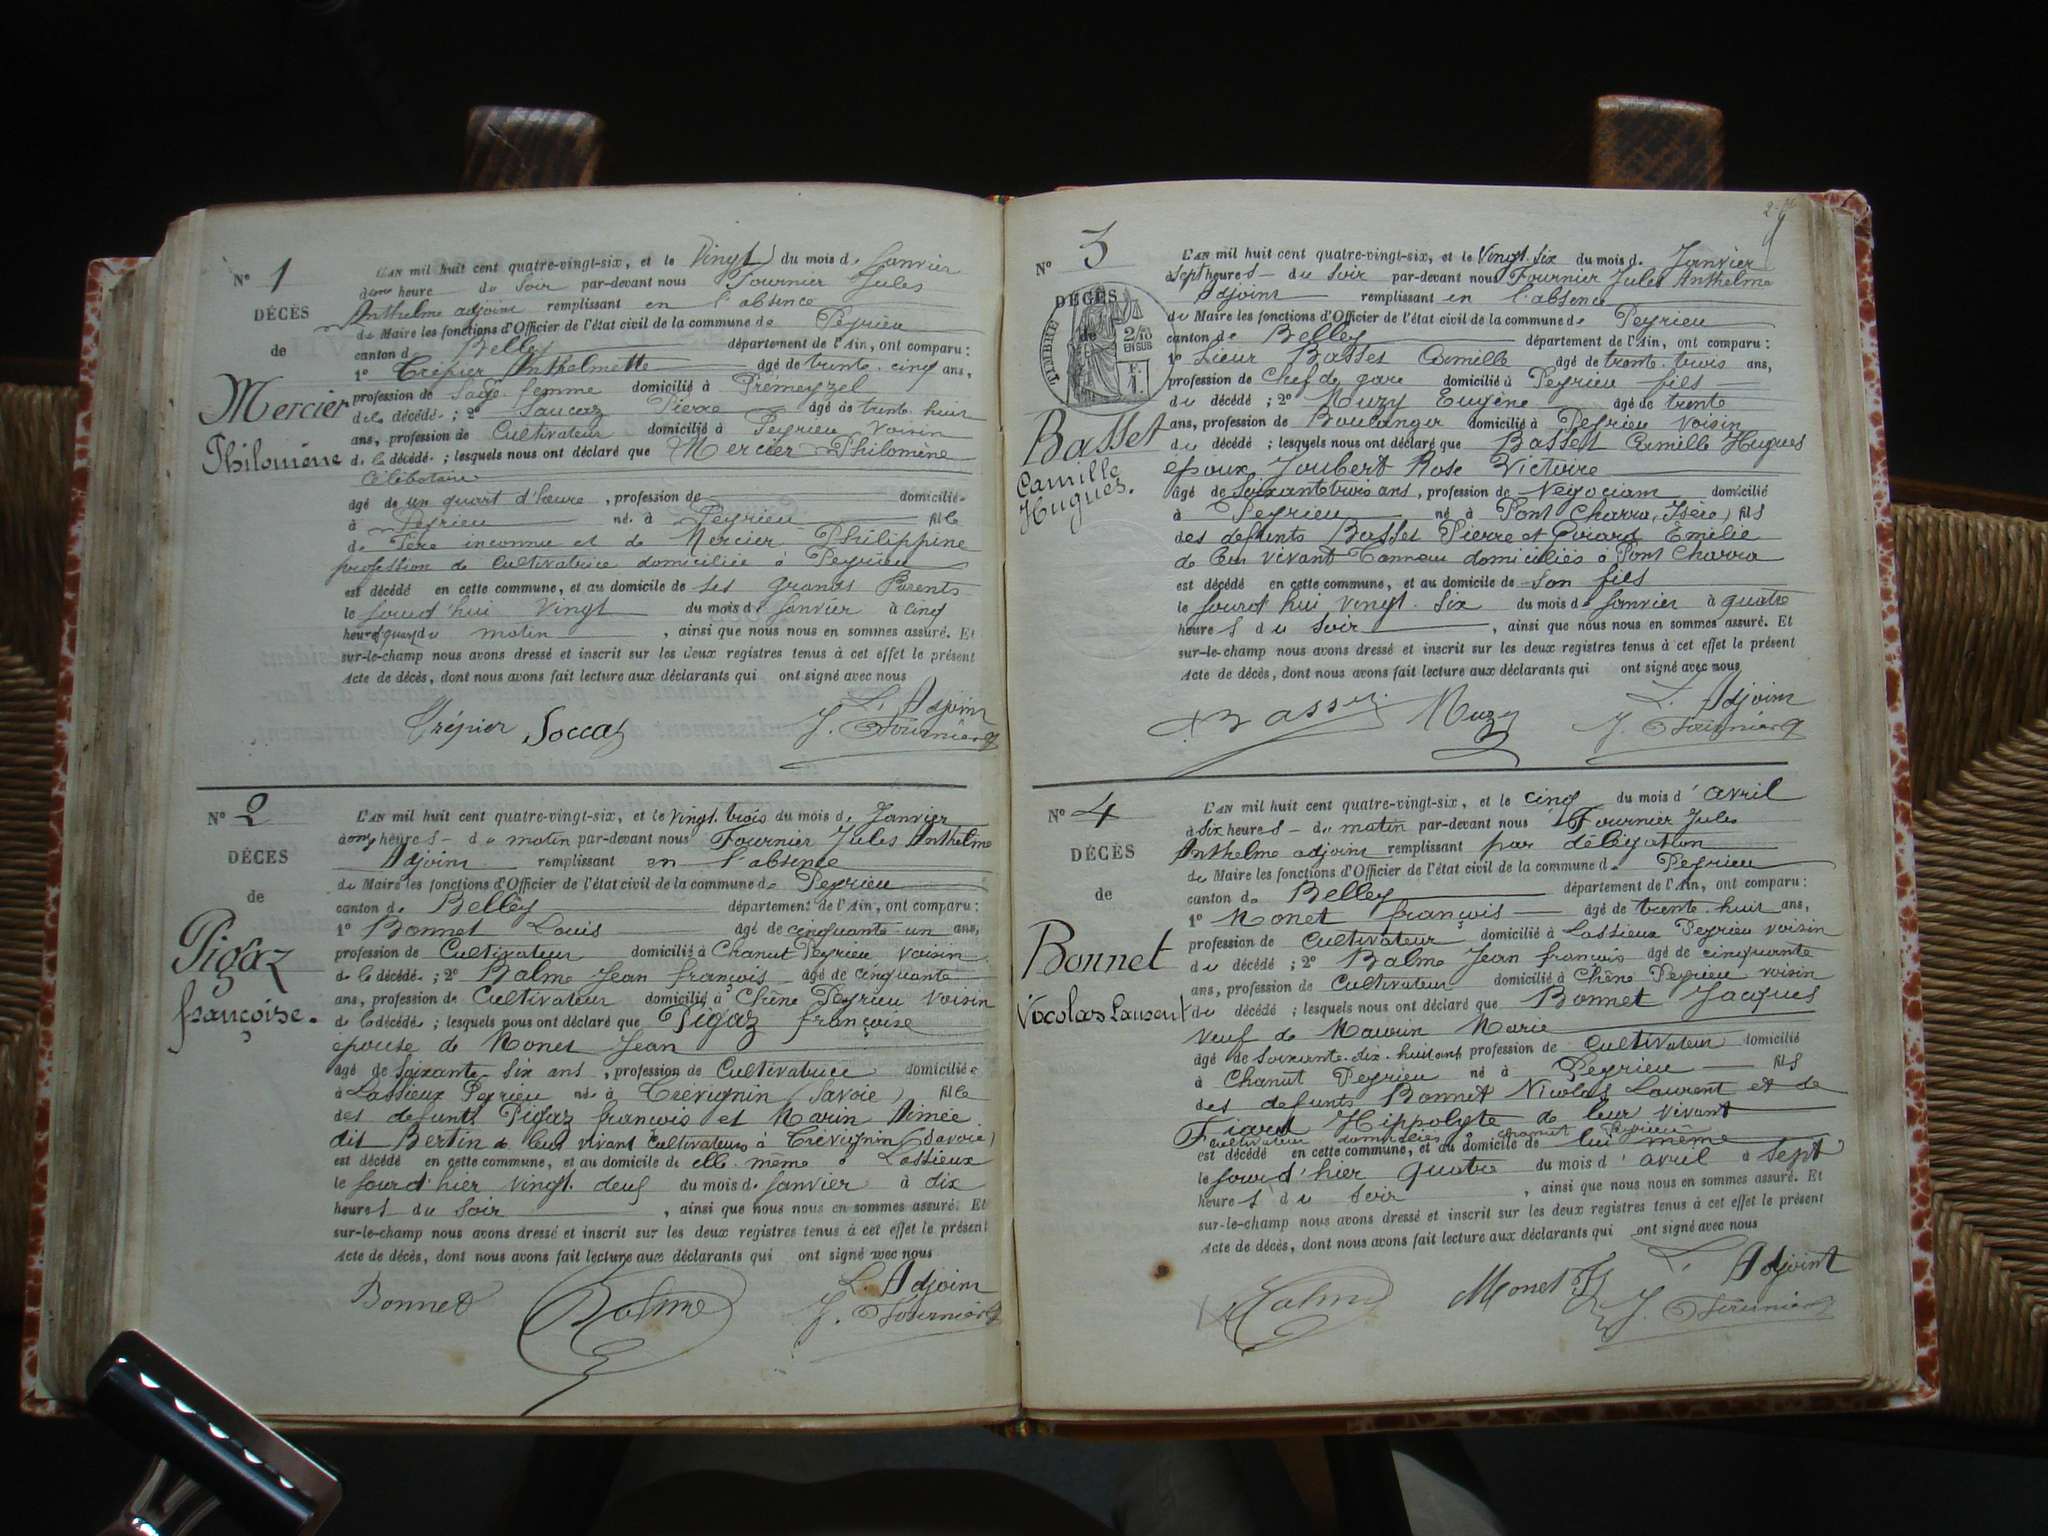 N° 1
DÉCÈS
de
Mercier
Philomène
L'AN mil huit cent quatre-vingt-six, et le Vingt du mois de Janvier
heure du Soir par-devant nous Fournier Jules
Anthelme adjoint remplissant en l'absence
de Maire les fonctions d'Officier de l'état civil de la commune de Peyrieu
canton de Belley département de l'Ain, ont comparu :
1° Trépier Anthelmette âgé de trente-cinq ans,
profession de Sage-femme domicilié à Prémeyzel
de la décédé ; 2° Saucaz Pierre âgé de trente-huit
ans, profession de Cultivateur domicilié à Peyrieu voisin
de la décédé ; lesquels nous ont déclaré que Mercier Philomène
Célibataire
âgé de un quart d'heure, profession de domicilié
à Peyrieu né à Peyrieu fille
de Père inconnu et de Mercier Philippine
profession de Cultivatrice domiciliée à Peyrieu
est décédé en cette commune, et au domicile de ses grands Parents
le Jourd'hui Vingt du mois de Janvier à cinq
heures quart du matin, ainsi que nous nous en sommes assuré. Et
sur-le-champ nous avons dressé et inscrit sur les deux registres tenus à cet effet le présent
Acte de décès, dont nous avons fait lecture aux déclarants qui ont signé avec nous
L'Adjoint
Trépier Soccaz J. Fournier
N° 2
DÉCÈS
de
Pigaz
françoise.
L'AN mil huit cent quatre-vingt-six, et le vingt-trois du mois de Janvier
à onze heures du matin par-devant nous Fournier Jules Anthelme
Adjoint remplissant en l'absence
de Maire les fonctions d'Officier de l'état civil de la commune de Peyrieu
canton de Belley département de l'Ain, ont comparu :
1° Bonnet Louis âgé de cinquante-un ans,
profession de Cultivateur domicilié à Chanut Peyrieu voisin
de la décédé ; 2° Balme Jean françois âgé de cinquante
ans, profession de Cultivateur domicilié à Chêne Peyrieu voisin
de la décédé ; lesquels nous ont déclaré que Pigaz françoise
epouse de Monet Jean
âgé de Soixante-six ans, profession de Cultivatrice domiciliée
à Lassieux Peyrieu née à Trévignin (Savoie) fille
des defunts Pigaz françois et Marin Aimée
dit Bertin de leur vivant cultivateurs à Trévignin (Savoie)
est décédé en cette commune, et au domicile de elle-même à Lassieux
le Jourd'hier vingt-deux du mois de Janvier à dix
heures du Soir, ainsi que nous nous en sommes assuré. Et
sur-le-champ nous avons dressé et inscrit sur les deux registres tenus à cet effet le présent
Acte de décès, dont nous avons fait lecture aux déclarants qui ont signé avec nous
L'Adjoint
Bonnet Balme J. Fournier
N° 3
DÉCÈS
de
TIMBRE
2/10
EN SUS
F.
1.
Basset
Camille
Hugues.
L'AN mil huit cent quatre-vingt-six, et le Vingt-six du mois de Janvier
Sept heures du Soir par-devant nous Fournier Jules Anthelme
Adjoint remplissant en l'absence
du Maire les fonctions d'Officier de l'état civil de la commune de Peyrieu
canton de Belley département de l'Ain, ont comparu :
1° Sieur Basset Camille âgé de trente-trois ans,
profession de Chef de gare domicilié à Peyrieu fils
du décédé ; 2° Muzy Eugène âgé de trente
ans, profession de Boulanger domicilié à Peyrieu voisin
du décédé ; lesquels nous ont déclaré que Basset Camille Hugues
epoux Joubert Rose Victoire
âgé de Soixante trois ans, profession de Négociant domicilié
à Peyrieu né à Pont Charra (Isère) fils
des defunts Basset Pierre et Girard Emélie
de leur vivant domiciliés à Pont Charra
est décédé en cette commune, et au domicile de Son fils
le Jourd'hui vingt-six du mois de Janvier à quatre
heures du Soir, ainsi que nous nous en sommes assuré. Et
sur-le-champ nous avons dressé et inscrit sur les deux registres tenus à cet effet le présent
Acte de décès, dont nous avons fait lecture aux déclarants qui ont signé avec nous
L'Adjoint
Basset Muzy J. Fournier
N° 4
DÉCÈS
de
Bonnet
Nicolas Laurent
L'AN mil huit cent quatre-vingt-six, et le cinq du mois d'avril
à six heures du matin par-devant nous Fournier Jules
Anthelme adjoint remplissant par délégation
de Maire les fonctions d'Officier de l'état civil de la commune de Peyrieu
canton de Belley département de l'Ain, ont comparu :
1° Monet françois âgé de trente-huit ans,
profession de Cultivateur domicilié à Lassieux Peyrieu voisin
du décédé ; 2° Balme Jean françois âgé de cinquante
ans, profession de Cultivateur domicilié à Chêne Peyrieu voisin
du décédé ; lesquels nous ont déclaré que Bonnet Jacques
Veuf de Maurin Marie
âgé de Soixante-dix-huit ans profession de Cultivateur domicilié
à Chanut Peyrieu né à Peyrieu fils
des defunts Bonnet Nicolas Laurent et de
Hippolyte de leur vivant
cultivateur domiciliés Chanut Peyrieu
est décédé en cette commune, et au domicile de lui même
le Jourd'hier quatre du mois d'avril à sept
heures du Soir, ainsi que nous nous en sommes assuré. Et
sur-le-champ nous avons dressé et inscrit sur les deux registres tenus à cet effet le présent
Acte de décès, dont nous avons fait lecture aux déclarants qui ont signé avec nous
L'Adjoint
Balme Monet J. Fournier